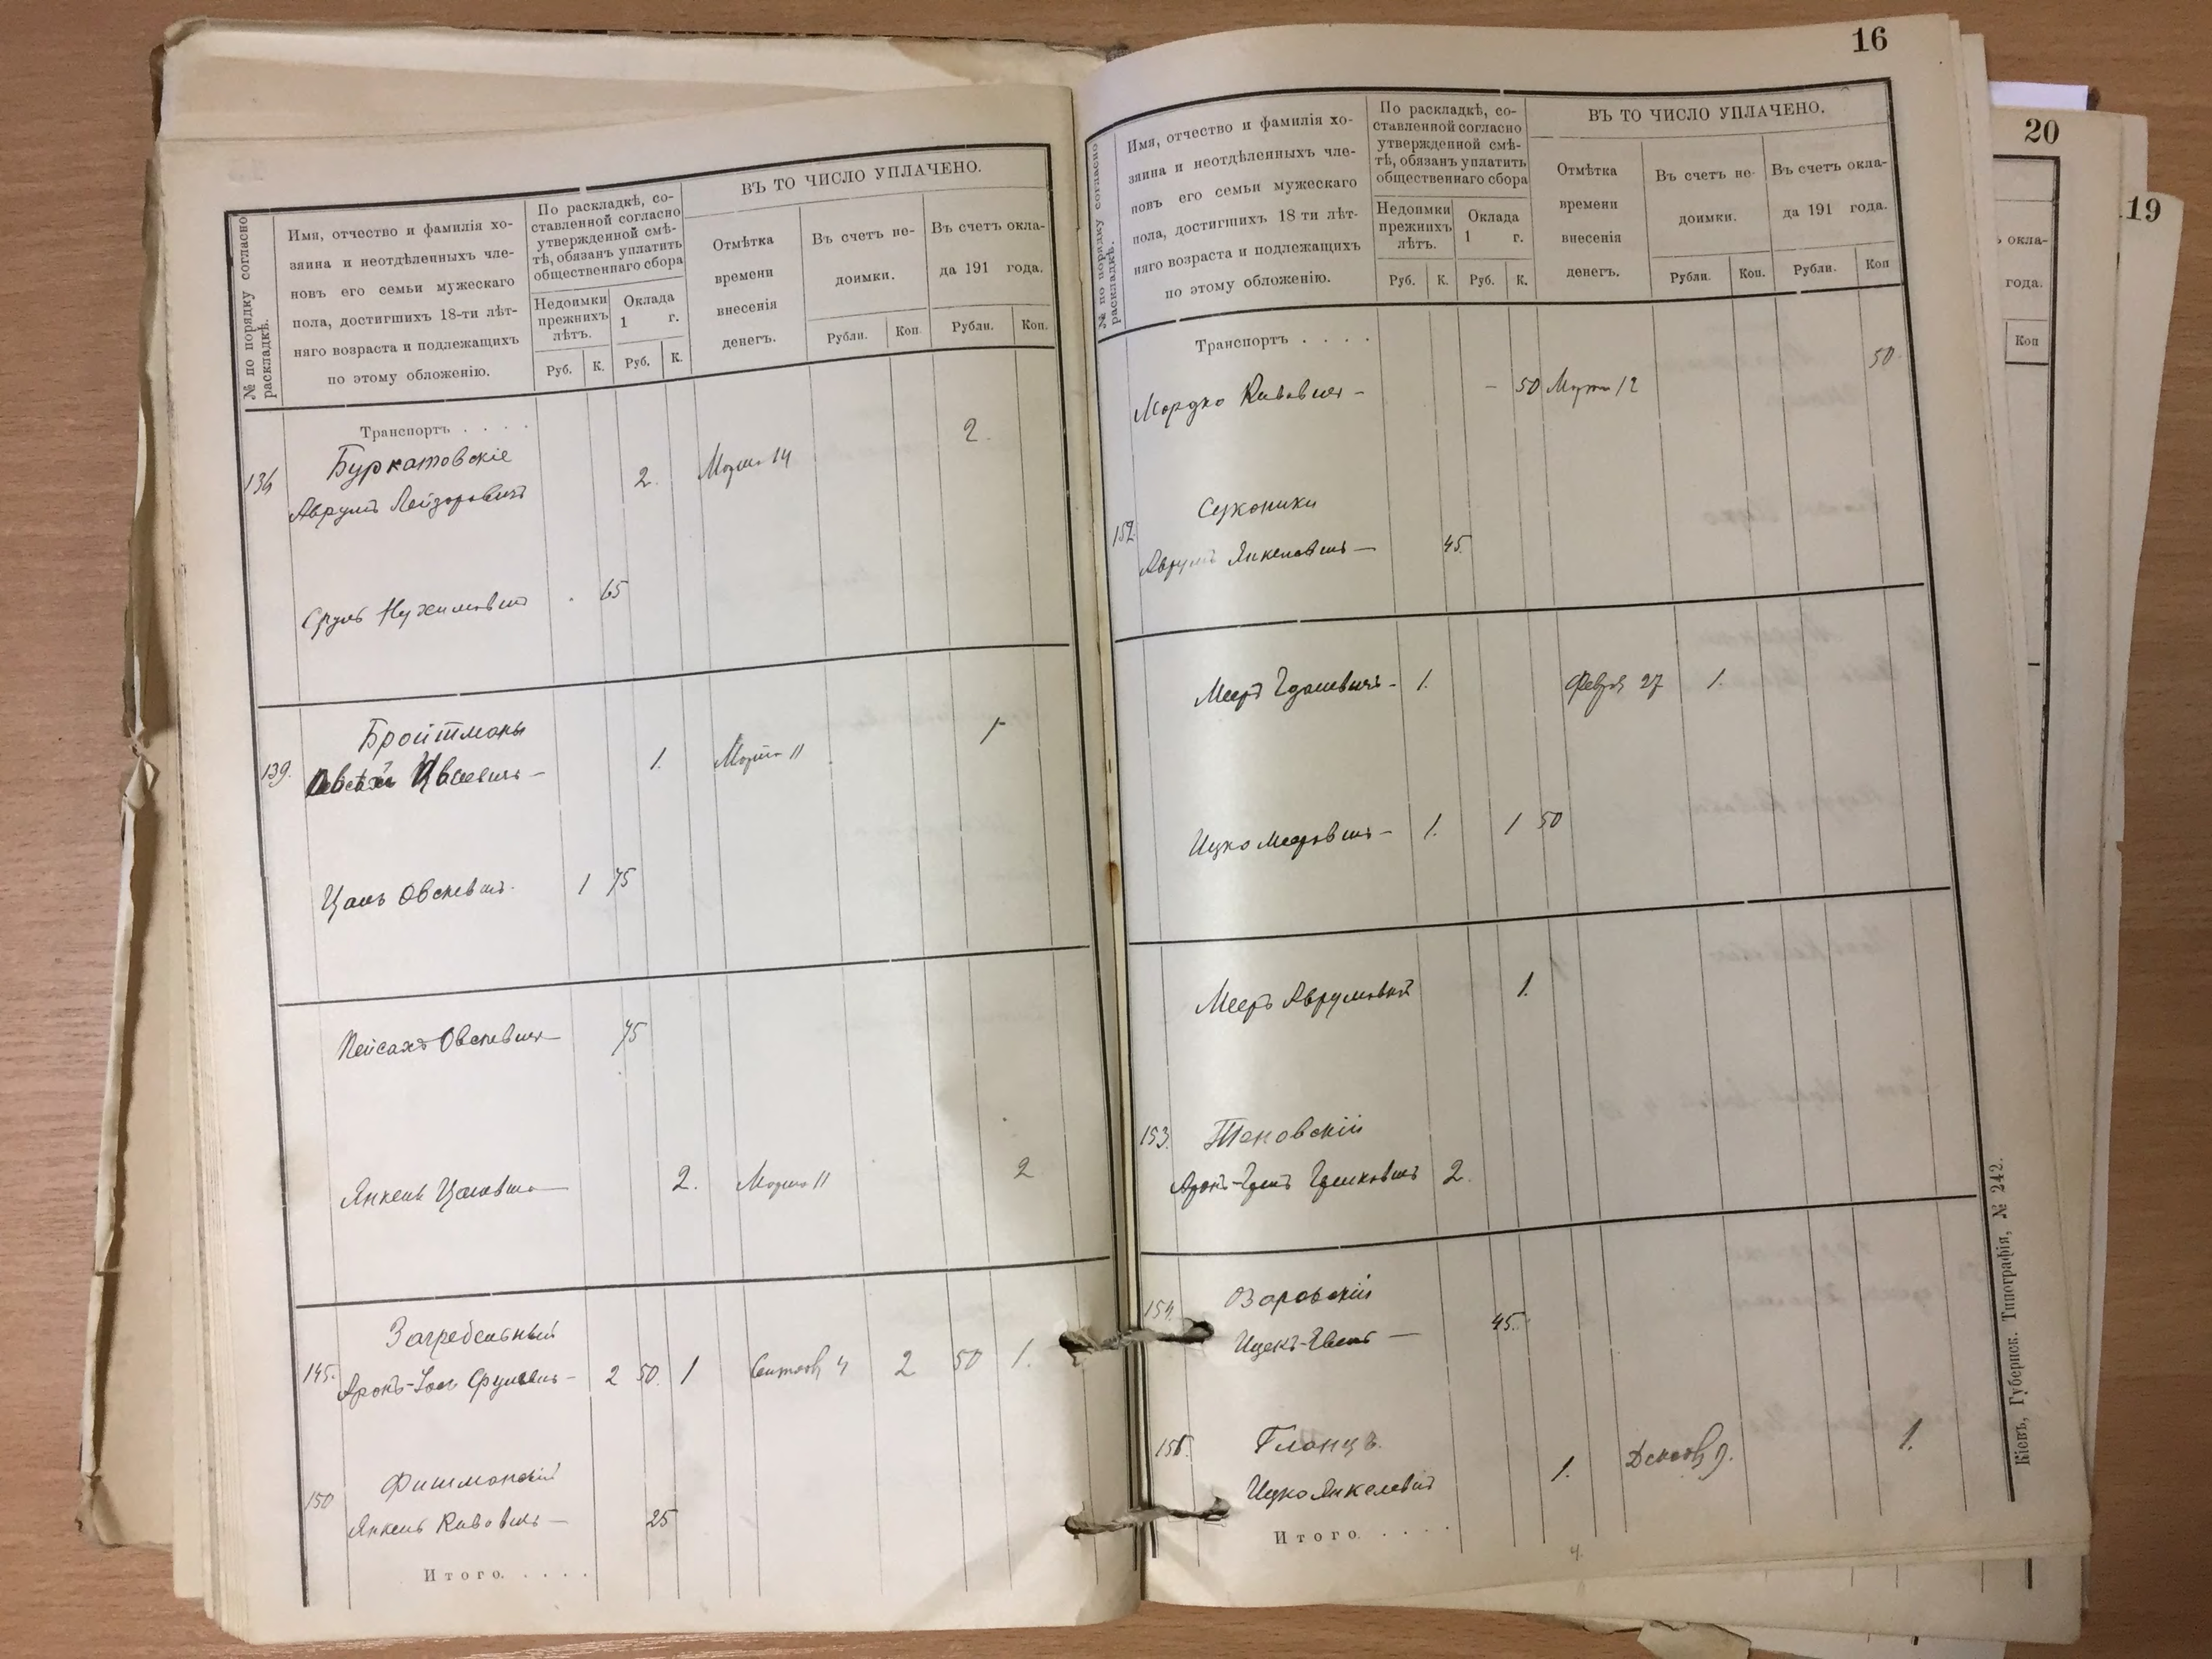 № по порядку согласно раскладкѣ.
Имя, отчество и фамилія хо-
зяина и неотдѣленныхъ чле-
новъ его семьи мужескаго
пола, достигшихъ 18-ти лѣт-
няго возраста и подлежащихъ
по этому обложенію.
По раскладкѣ, со-
ставленной согласно
утвержденной смѣ-
тѣ, обязанъ уплатить
общественнаго сбора
Недоимки прежнихъ лѣтъ.
Оклада 1 г.
Руб. К. Руб. К.
ВЪ ТО ЧИСЛО УПЛАЧЕНО.
Отмѣтка
времени
внесенія
денегъ.
Въ счетъ не-
доимки.
Въ счетъ окла-
да 191 года.
Рубли. Коп. Рубли. Коп.
Транспортъ . . . .
Буркатовскіе
136 Аврумъ Лейзоровичъ 2. Марта 14 2.
Сруль Нухимовичъ 65
Бройтманы
139. 1. Марта 11 1
Цаль Овсеевичъ 1 75
Пейсахъ Овсеевичъ 75
Янкель Цалевичъ 2. Марта 11 2
Загребельный
145. Аронъ-Іось 2 50 1 4 2 50 1.
Фишманскій
150 Янкель Кивовичъ 25
Итого. . . . .
16
№ по порядку согласно раскладкѣ.
Имя, отчество и фамилія хо-
зяина и неотдѣленныхъ чле-
новъ его семьи мужескаго
пола, достигшихъ 18 ти лѣт-
няго возраста и подлежащихъ
по этому обложенію.
По раскладкѣ, со-
ставленной согласно
утвержденной смѣ-
тѣ, обязанъ уплатить
общественнаго сбора
Недоимки прежнихъ лѣтъ.
Оклада 1 г.
Руб. К. Руб. К.
ВЪ ТО ЧИСЛО УПЛАЧЕНО.
Отмѣтка
времени
внесенія
денегъ.
Въ счетъ не-
доимки.
Въ счетъ окла-
да 191 года.
Рубли. Коп. Рубли. Коп
Транспортъ . . . .
Мордко Кивовичъ – – 50 Марта 12 50
Суконики
152. Аврумъ Янкелевичъ – 45.
Мееръ – 1. Февр 27 1.
Ицко Мееровичъ – 1. 1 50
Мееръ Аврумовичъ 1.
153. Теновскій
2.
154. Озаровскій
Ицекъ – 45.
156. Гланцъ.
Ицко Янкелевичъ 1. 9. 1.
Итого. . . . .
4.
Кіевъ, Губернск. Типографія, № 242.
20
окла-
года.
Коп
19